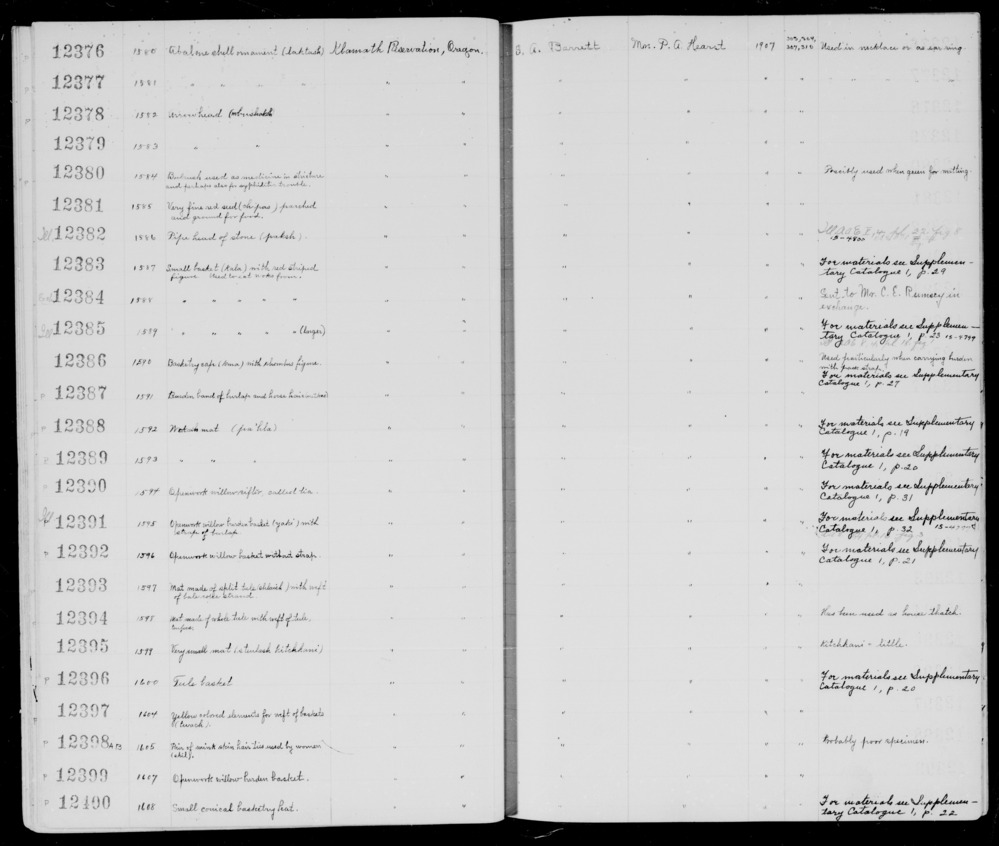 12376 1580 Abalone shell ornament (laktash) Klamath Reservation, Oregon. S. A. Barrett Mrs. P. A. Hearst 1907 Used in necklace or as ear ring
12377 1581 " " " " " "
12378 1582 Arrowhead
12379 1583 " "
12380 1584 used as medicine in
and perhaps also for syphilitic trouble. Possibly used when green for matting.
12381 1585 Very fine red seed ( ) parched
and ground for food.
12382 1586 Pipe head of stone (paksh). 15-4800
12383 1587 Small basket (kala) with red striped
figure. Used to eat from. For materials see Supplemen-
tary Catalogue 1, p. 29
12384 1588 " " " " " Sent to Mr. C. E. Rumsey in
exchange.
12385 1589 " " " " " (larger) For materials see Supplemen-
tary Catalogue 1, p. 23 15-4799
12386 1590 Basketry cape ( ) with rhombus figure. Used particularly when carrying burden
with pack strap.
For materials see Supplementary
Catalogue 1, p. 27
12387 1591 Burden band of burlap and horse hair
12388 1592 mat (pa'hla) For materials see Supplementary
Catalogue 1, p. 19
12389 1593 " " " For materials see Supplementary
Catalogue 1, p. 20
12390 1594 Openwork willow sifter, called tia. For materials see Supplementary
Catalogue 1, p. 31
12391 1595 Openwork willow burden basket (yaki) with
straps of burlap For materials see Supplementary
Catalogue 1, p. 32
P 12392 1596 Openwork willow basket without strap. For materials see Supplementary
Catalogue 1, p. 21
12393 1597 Mat made of split tule ( ) with weft
of tule strand.
12394 1598 Mat made of whole tule with weft of tule. Has been used as house thatch.
12395 1599 Very small mat ( kitchkani) kitchkani - little.
P 12396 1600 Tule basket For materials see Supplementary
Catalogue 1, p. 20
12397 1604 Yellow colored elements for weft of baskets
P 12398 A,B 1605 Pair of mink skin hair ties used by women Probably poor specimen.
P 12399 1607 Openwork willow burden basket.
P 12400 1608 Small conical basketry hat. For materials see Supplemen-
tary Catalogue 1, p. 22